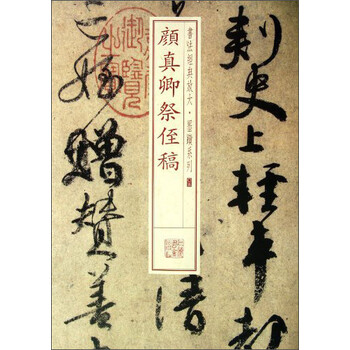 刺史上輕車都
清
書法經典放大・墨蹟系列
顏真卿祭侄稿
亡姪贈贊善
御覽